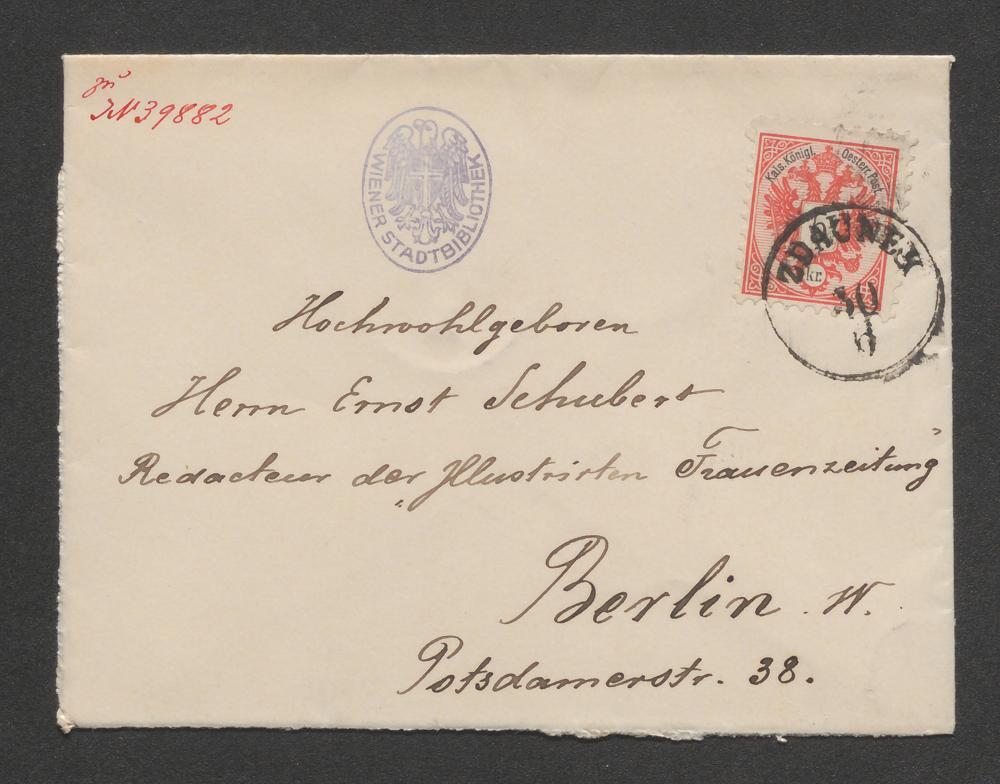 zu
IN 39882
WIENER STADTBIBLIOTHEK
Kais. Königl. Oesterr. Post.
kr.
ZDAUNEK
30
6
Hochwohlgeboren
Herrn Ernst Schubert
Redacteur der „Illustrirten Frauenzeitung"
Berlin W.
Potsdamerstr. 38.